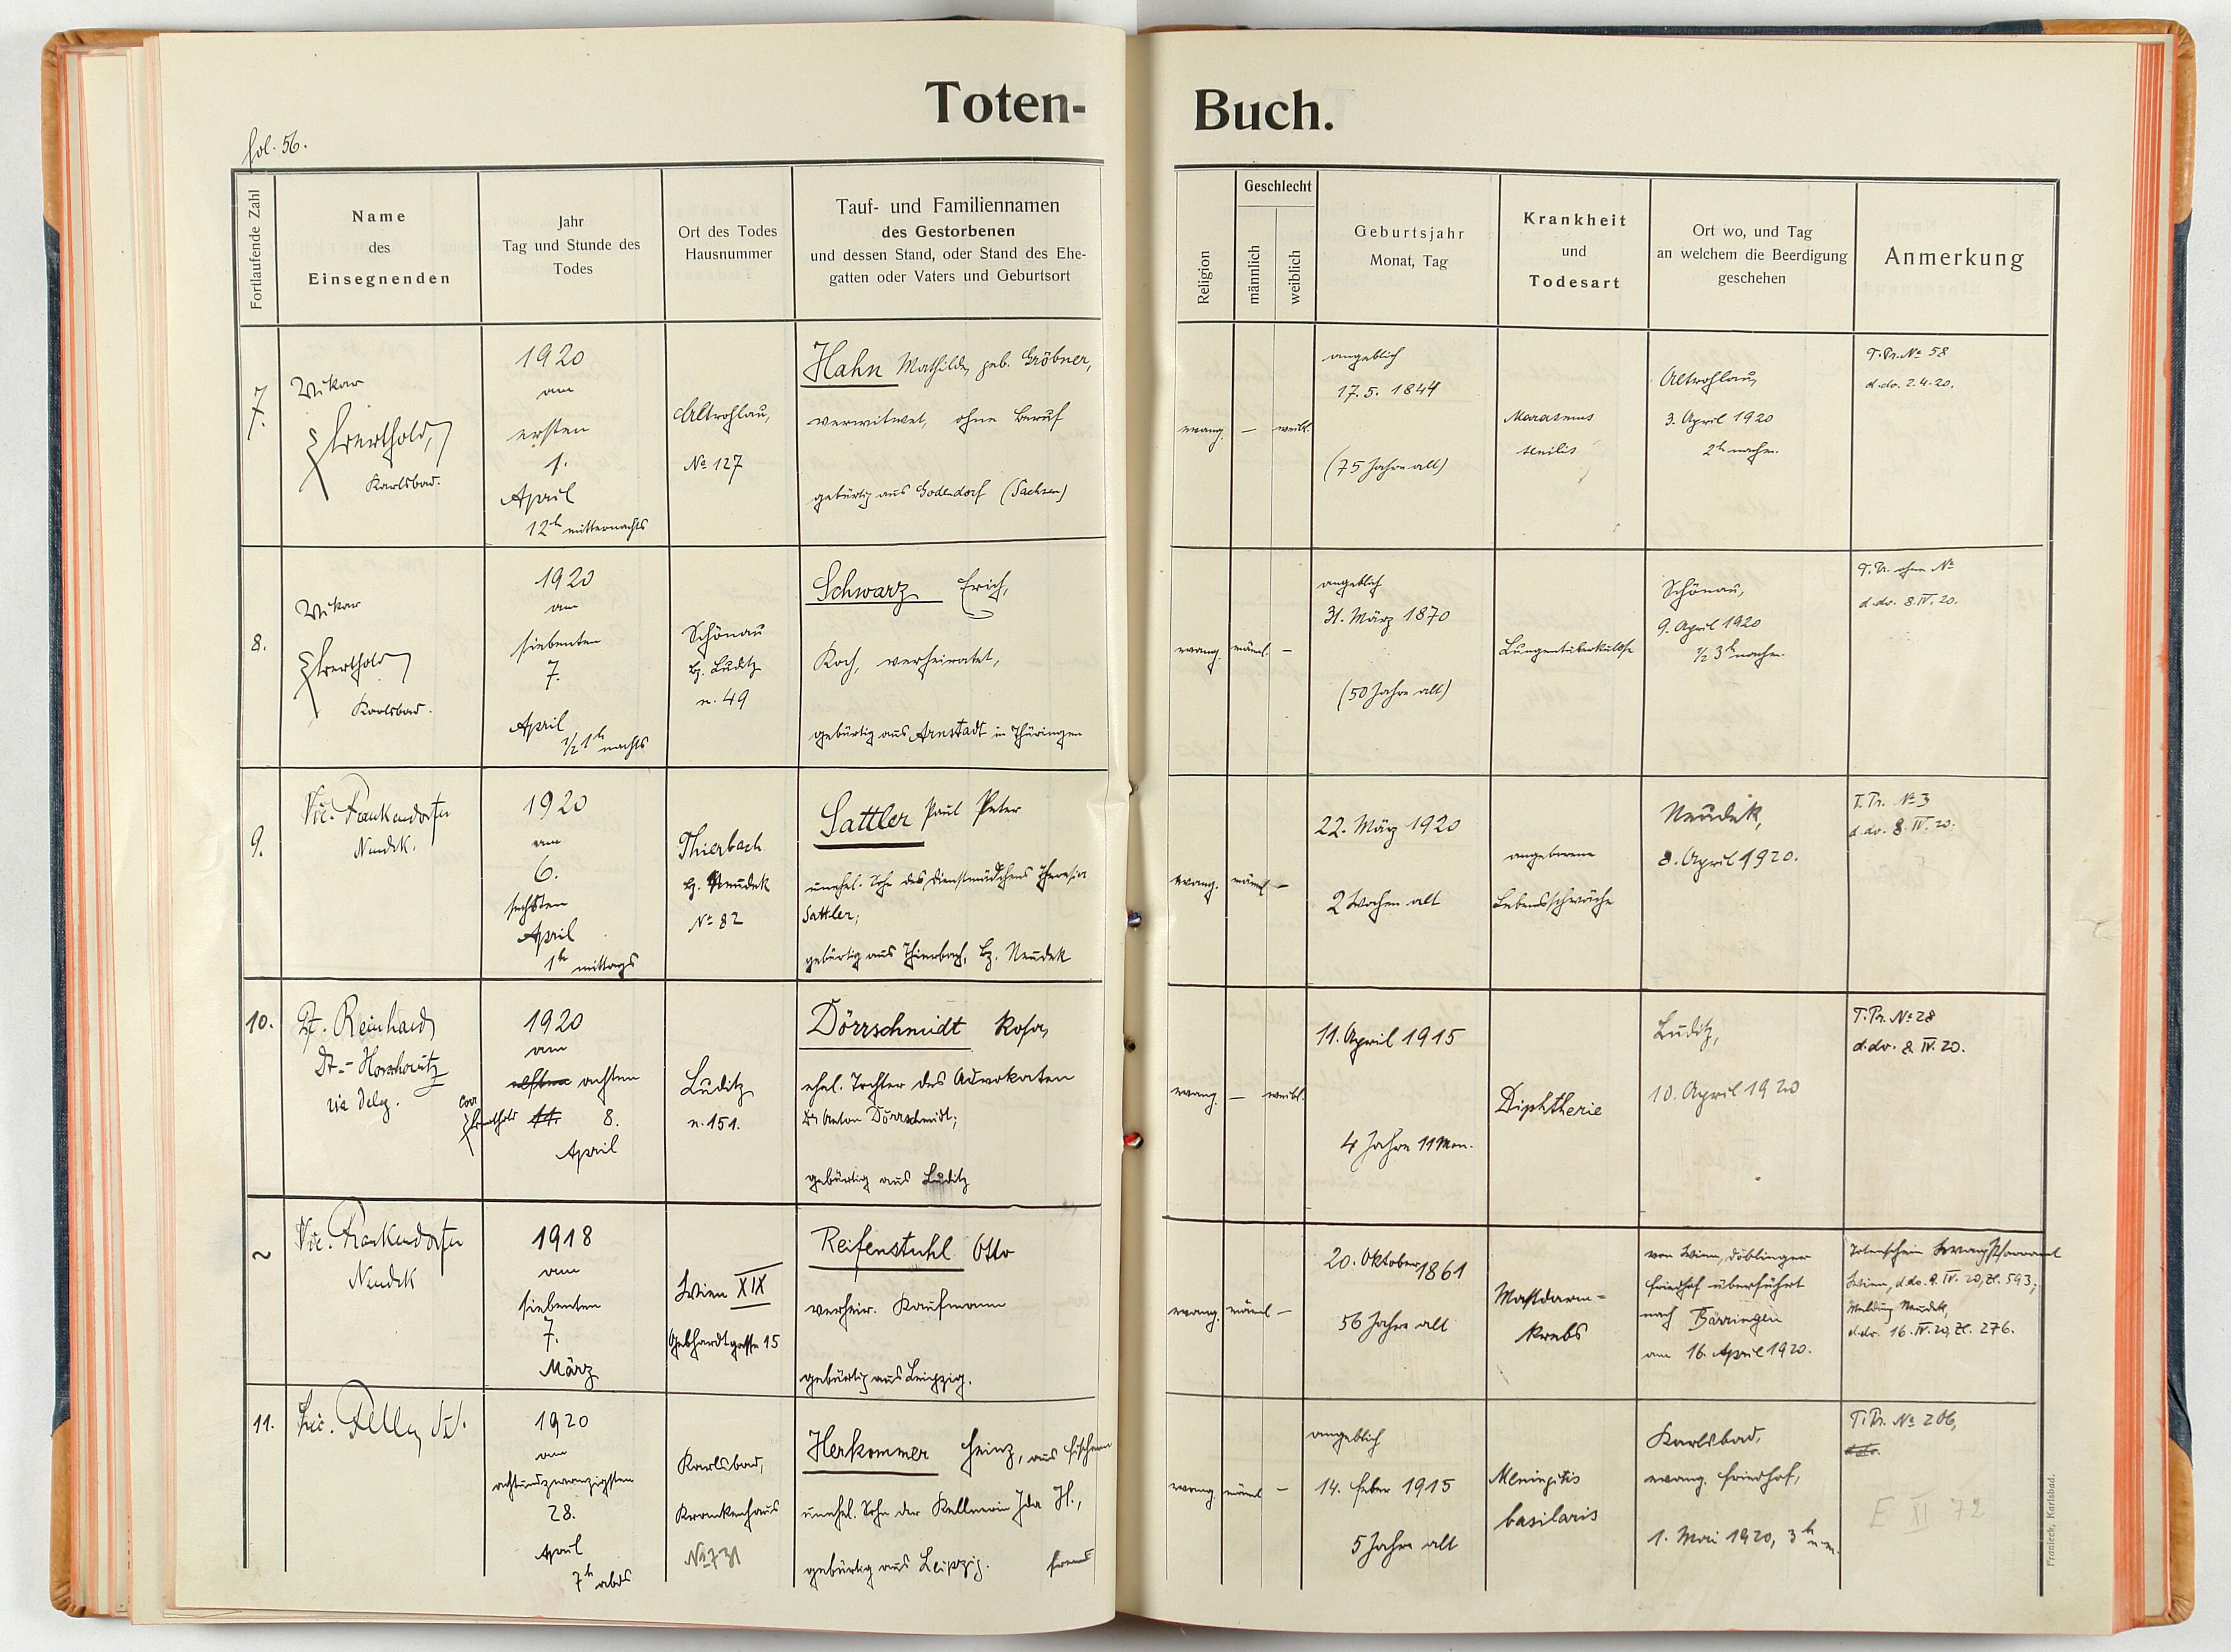 Toten-
Buch.
fol. 56.
Fortlaufende Zahl
Name
des
Einsegnenden
Jahr
Tag und Stunde des
Todes
Ort des Todes
Hausnummer
Tauf- und Familiennamen
des Gestorbenen
und dessen Stand, oder Stand des Ehe-
gatten oder Vaters und Geburtsort
Religion
Geschlecht
männlich
weiblich
Geburtsjahr
Monat, Tag
Krankheit
und
Todesart
Ort wo, und Tag
an welchem die Beerdigung
geschehen
Anmerkung
7.
Vikar
Karlsbad.
1920
am
ersten
1.
April
12h mitternachts
Altrohlau,
No 127
Hahn Mathilde, geb. Gröbner,
verwitwet, ohne Beruf
gebürtig aus Godendorf (Sachsen)
evang.
—
weibl.
angeblich
17. 5. 1844
(75 Jahre alt)
Marasmus
senilis
Altrohlau,
3. April 1920
2h nachm.
T. Pr. No 58
d.do. 2.4.20.
8.
Vikar
Karlsbad.
1920
am
siebenten
7.
April
1/2 1h nachts
Schönau
bz. Luditz
n. 49
Schwarz Erich,
Koch, verheiratet,
gebürtig aus Arnstadt in Thüringen
evang.
männl.
—
angeblich
31. März 1870
(50 Jahre alt)
Lungentuberkulose
Schönau,
9. April 1920
1/2 3h nachm.
T. Pr. ohne No
d.do. 8.IV.20.
9.
Vic. Frankendorfer
Neudek.
1920
am
6.
sechsten
April
1h mittags
Thierbach
bz. Neudek
No 82
Sattler Paul Peter
unehel. Sohn des Dienstmädchens Theresia
Sattler;
gebürtig aus Thierbach, bz. Neudek
evang.
männl.
—
22. März 1920
2 Wochen alt
angeborene
Lebensschwäche
Neudek,
8. April 1920.
T. Pr. No 3
d.do. 8.IV.20.
10.
Pf. Reinhard
via deleg.
1920
am
achten
corr.
11. 8.
April
Luditz
n. 151.
Dörrschmidt Rosa,
ehel. Tochter des Advokaten
Dr Anton Dörrschmidt;
gebürtig aus Luditz
evang.
—
weibl.
11. April 1915
4 Jahre 11 Mon.
Diphtherie
Luditz,
10. April 1920
T. Pr. No 28
d.do. 8.IV.20.
~
Vic. Frankendorfer
Neudek
1918
am
siebenten
7.
März
Wien XIX
Gebhardtgasse 15
Reifenstuhl Otto
verheir. Kaufmann
gebürtig aus Leipzig.
evang.
männl
—
20. Oktober 1861
56 Jahre alt
Mastdarm-
krebs
von Wien, Döblinger
Friedhof überführt
nach Bärringen
am 16. April 1920.
Totenschein
Wien, d.do. 9.IV.20, Zl. 593;
Meldung Neudek,
d.do. 16.IV.20, Zl. 276.
11.
1920
am
achtundzwanzigsten
28.
April
7h abds
Karlsbad,
Krankenhaus
No 731
Herkommer Heinz, aus Fischern
unehel. Sohn der Kellnerin Ida H.,
gebürtig aus Leipzig. fremd
evang.
männl
—
angeblich
14. Feber 1915
5 Jahre alt
Meningitis
basilaris
Karlsbad,
evang. Friedhof,
1. Mai 1920, 3h n.m.
T. Pr. No 206,
d.do.
E XI 72
Franieck, Karlsbad.